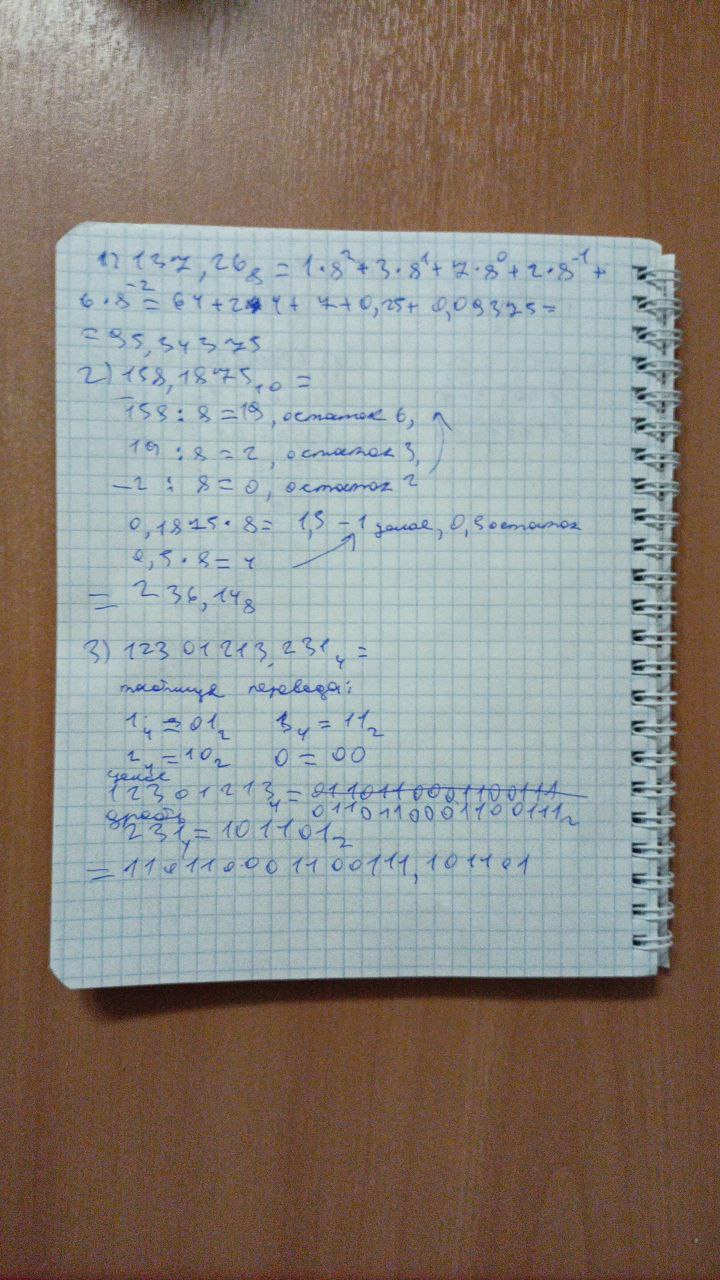 1) 137,26₈ = 1·8² + 3·8¹ + 7·8⁰ + 2·8⁻¹ +
6·8⁻² = 64 + 24 + 7 + 0,25 + 0,09375 =
= 95,34375
2) 158,1875₁₀ =
158 : 8 = 19, остаток 6,
19 : 8 = 2, остаток 3,
2 : 8 = 0, остаток 2
0,1875·8 = 1,5 – 1 целое, 0,5 остаток
0,5·8 = 4
= 236,14₈
3) 12301213,231₄ =
таблица перевода:
1₄ = 01₂ 3₄ = 11₂
2₄ = 10₂ 0 = 00
целое
12301213₄ = 0110110001100111₂
дробь
231₄ = 101101₂
= 110110001100111,101101